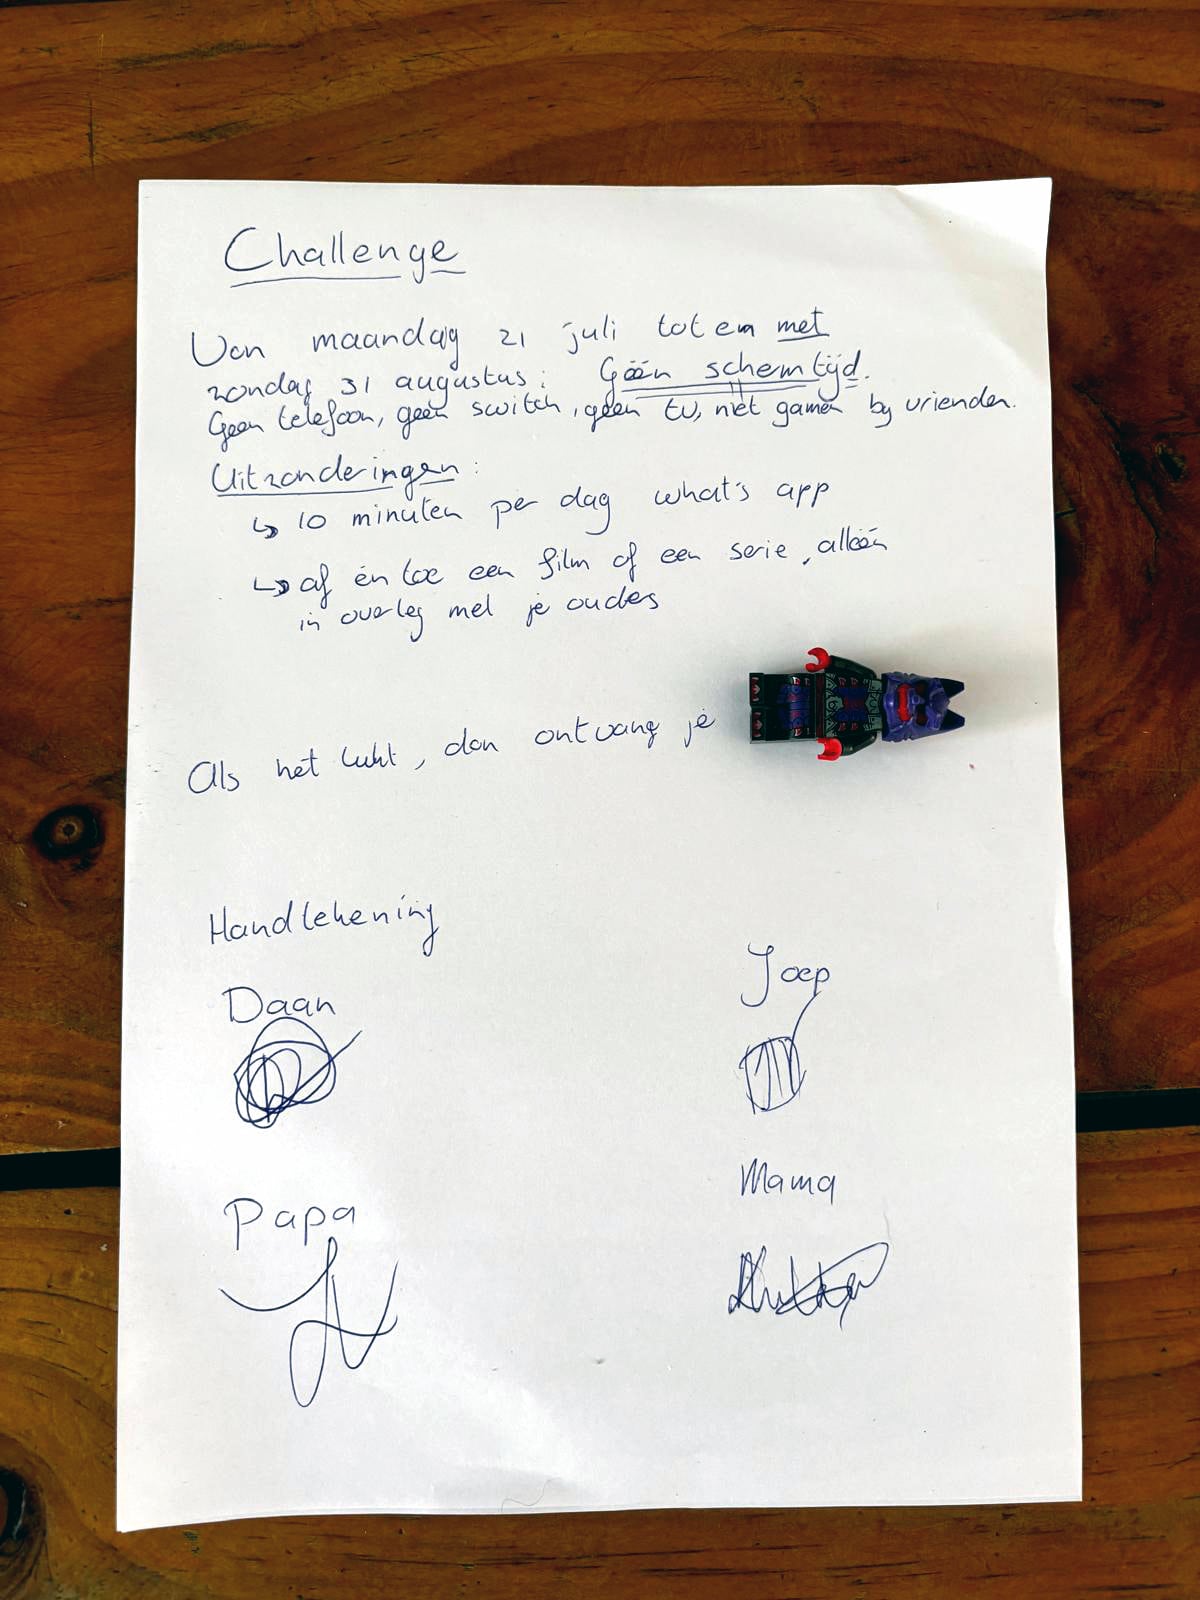 Challenge
Van maandag 21 juli tot en met
zondag 31 augustus: Géén schermtijd.
Geen telefoon, geen switch, geen tv, niet gamen bij vrienden.
Uitzonderingen:
↳ 10 minuten per dag what's app
↳ af en toe een film of een serie, alléén
in overleg met je ouders
Als het lukt, dan ontvang je
Handtekening
Daan
Joep
Mama
Papa